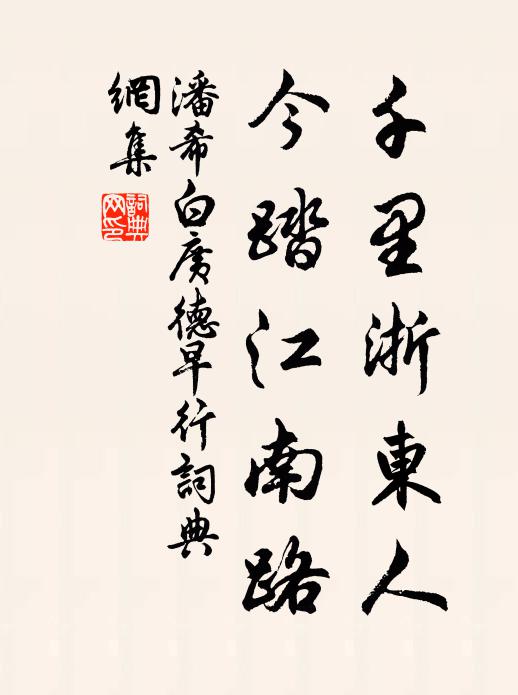 千里浙東人
今踏江南路
潘希白廣德早行詞典
網集
詞典
网印